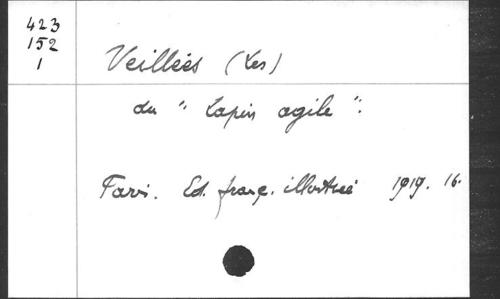 423
152
1
Veilleés (Les)
du " Lapin agile ".
Paris. Ed. franç. illustrée 1919. 16.